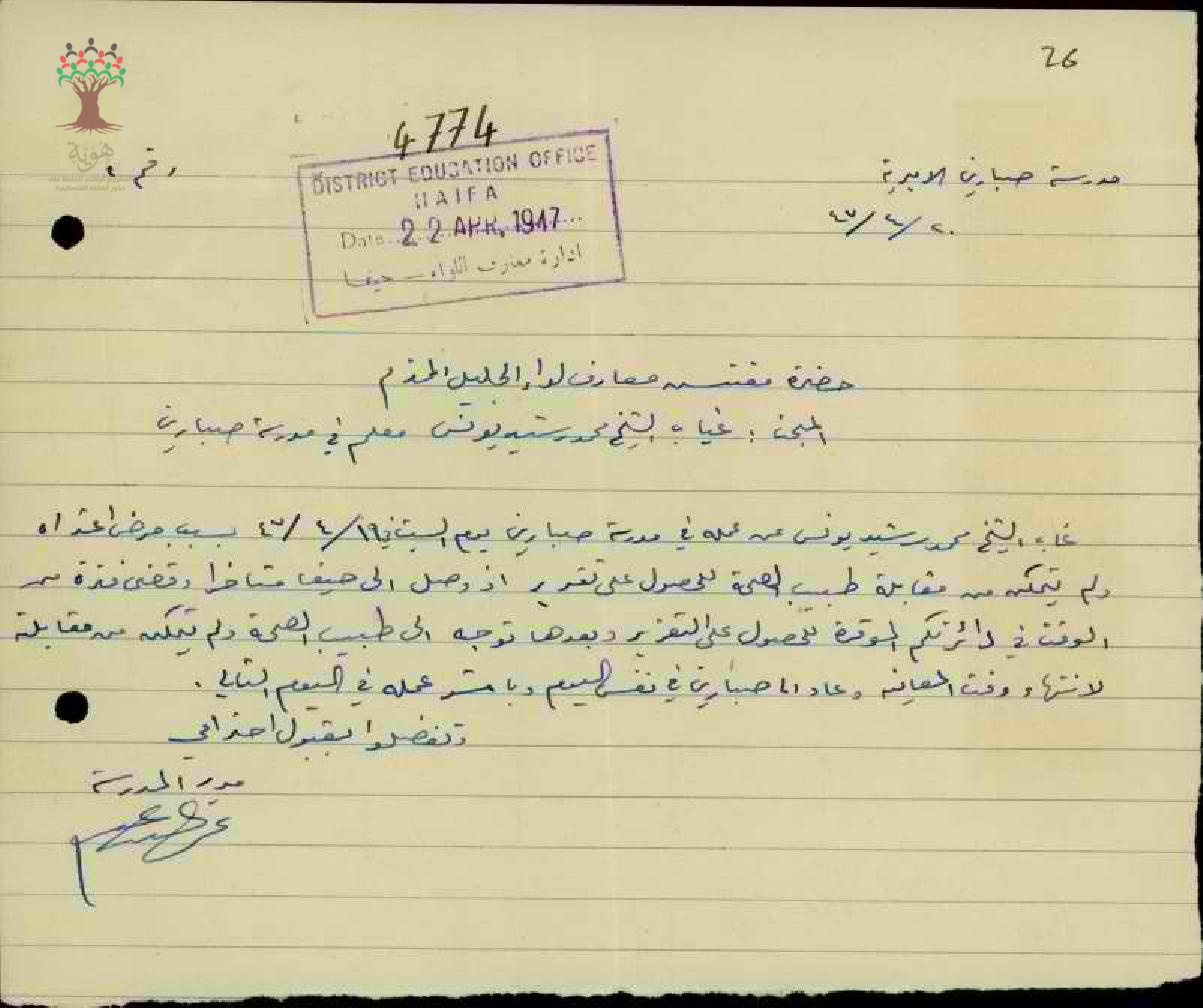 26
4774
DISTRICT EDUCATION OFFICE
HAIFA
Date 22 APR. 1947
ادارة معارف اللواء - حيفا
هوية
رقم
مدرسة صبارين الاميرية
٢٠/٤/٤٧
حضرة مفتش معارف لواء الجليل المحترم
المبحث : غياب الشيخ محمد رشيد يونس معلم في مدرسة صبارين
غاب الشيخ محمد رشيد يونس عن عمله في مدرسة صبارين يوم السبت في ١٩/٤/٤٧ بسبب مرض اعتراه
ولم يتمكن من مقابلة طبيب الصحة للحصول على تقرير اذ وصل الى حيفا متاخرا وقضى فترة من
الوقت في دائرتكم الموقرة للحصول على التقرير وبعدها توجه الى طبيب الصحة ولم يتمكن من مقابلته
لانتهاء وقت المعاينه وعاد الى صبارين في نفس اليوم وباشر عمله في اليوم التالي .
وتفضلوا بقبول احترامي
مدير المدرسة